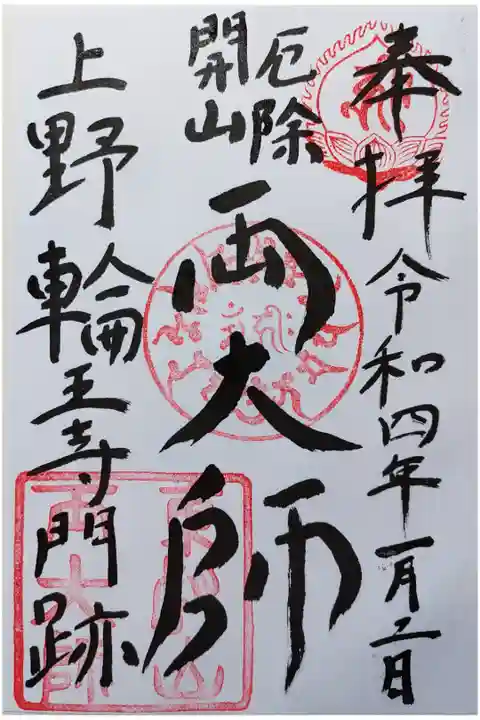 奉拝 令和四年一月二日
厄除
開山
両大師
上野輪王寺門跡
東叡山
両大師